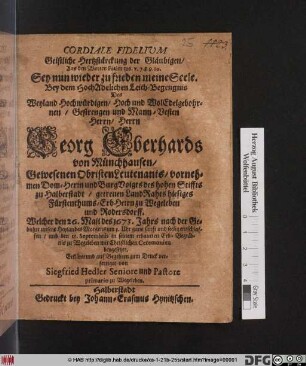 CORDIALE FIDELIUM
Geistliche Hertzstärckung der Gläubigen/
Aus den Worten Psalm 116. v. 7. 8. 9. 10.
Sey nun wieder zu frieden meine Seele.
Bey dem HochAdelichen Leich-Begengnis
Des
Weyland Hochwürdigen/ Hoch und WolEdelgebohr-
nen/ Gestrengen und Mann-Vesten
Herrn/ Herrn
Georg Eberhards
von Münchhausen/
Gewesenen Obristen Leutenants/ vorneh-
men Dom-Herrn und Burg Voigts des hohen Stiffts
zu Halberstadt/ getreuen LandRahts hiesiges
Fürstenthums/ Erb-Herrn zu Wegeleben
und Robersdorff.
Welcher den 26. Maii des 1673. Jahres nach der Ge-
beygesetzet.
Siegfried Hedler Seniore und Pastore
primario zu Wegeleben.
Halberstadt
Gedruckt bey Johann-Erasmus Hynitzschen.
Herzog August Bibliothek
Wolfenbüttel
DFG